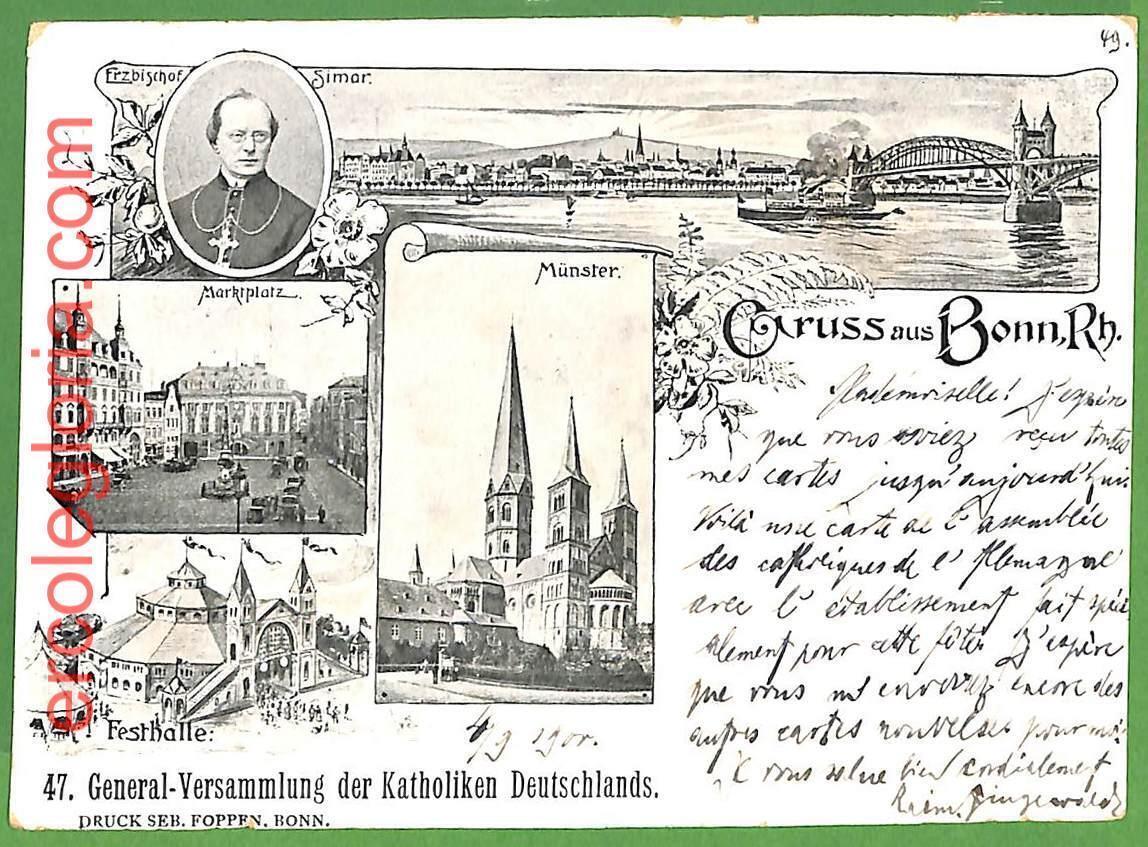 49.
Erzbischof Simar.
Marktplatz.
Münster.
Gruss aus Bonn, Rh.
Mademoiselle! J'espère
que vous aviez reçu toutes
mes cartes jusqu'aujourd'hui.
Voilà une carte de l'assemblée
des catholiques de l'Allemagne
avec l'établissement fait spéci
alement pour cette fête. J'espère
que vous m'enverrez encore des
autres cartes nouvelles pour moi.
vous salue bien cordialement
4/9 1900.
Festhalle:
47. General-Versammlung der Katholiken Deutschlands.
DRUCK SEB. FOPPEN, BONN.
ercolegloria.com